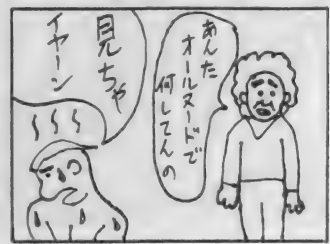 あんた
オールヌードで
何してんの
見ちゃ
イヤーン